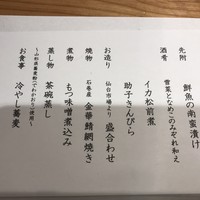 先附
鮮魚の南蛮漬け
酒肴
雪菜となめこのみぞれ和え
イカ松前煮
助子きんぴら
お造り
仙台市場より 盛合わせ
焼物
石巻産 金華鯖網焼き
煮物
もつ味噌煮込み
蒸し物
茶碗蒸し
お食事
〜山形県蕎麦粉「でわかおり」使用〜
冷やし蕎麦